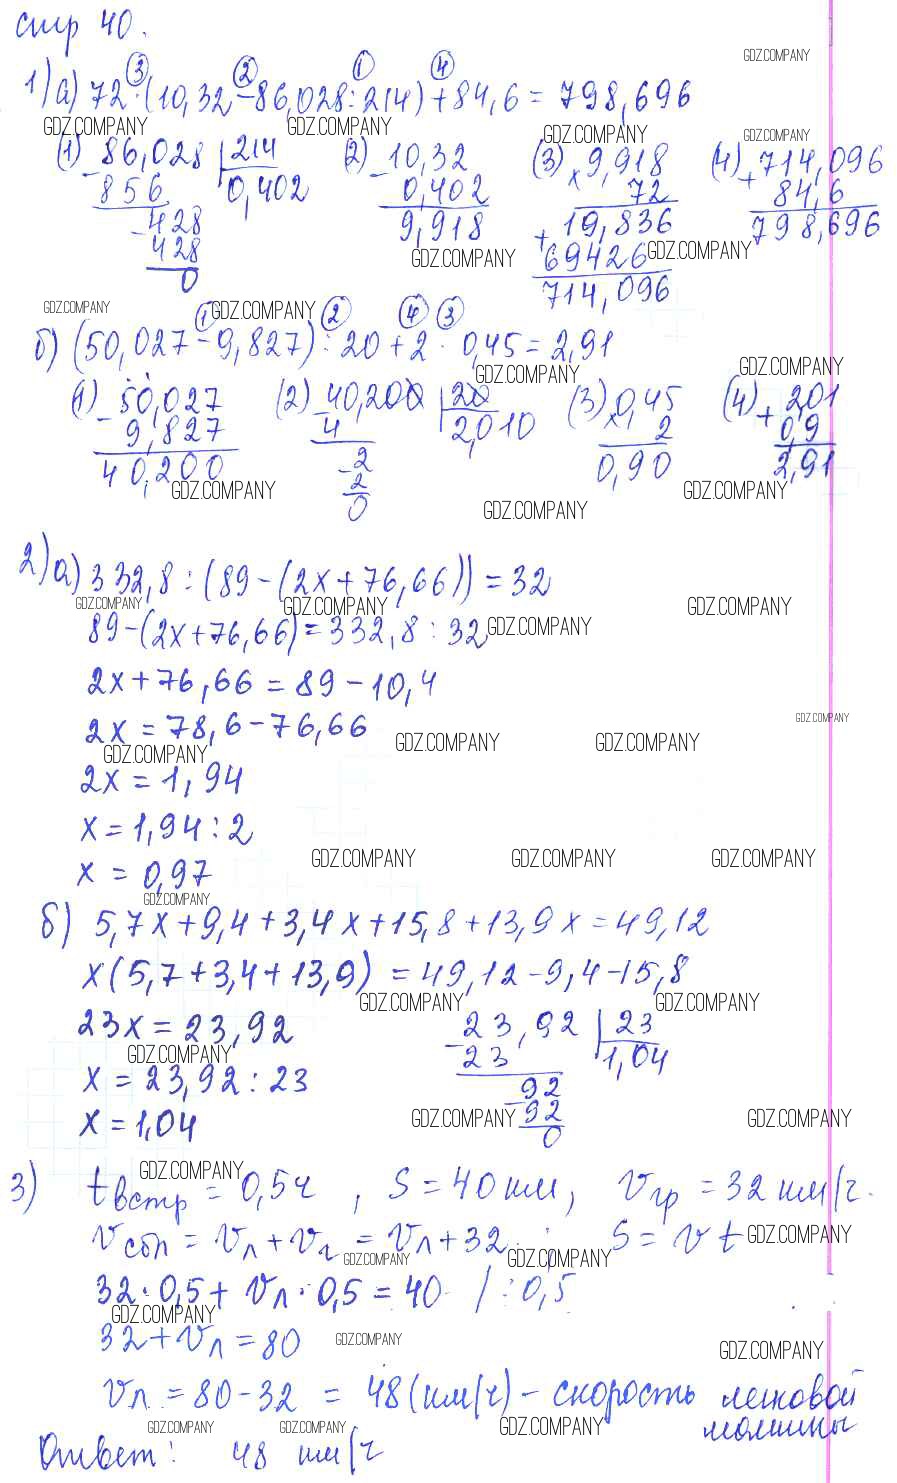 стр 40.
GDZ.COMPANY
③ ② ① ④
1) а) 72·(10,32-86,028:214)+84,6=798,696
GDZ.COMPANY GDZ.COMPANY GDZ.COMPANY GDZ.COMPANY
(1) - 86,028 | 214 (2) - 10,32 (3) × 9,918 (4) + 714,096
856 0,402 0,402 72 84,6
- 428 9,918 + 19,836 798,696
428 GDZ.COMPANY 69426 GDZ.COMPANY
0 714,096
GDZ.COMPANY ① GDZ.COMPANY ② ④ ③
б) (50,027-9,827):20+2·0,45=2,91
GDZ.COMPANY GDZ.COMPANY
(1) - 50,027 (2) - 40,200 | 20 (3) × 0,45 (4) + 2,01
9,827 4 2,010 2 0,9
40,200 - 2 0,90 2,91
GDZ.COMPANY 2 GDZ.COMPANY
0 GDZ.COMPANY
2) а) 332,8:(89-(2x+76,66))=32
GDZ.COMPANY GDZ.COMPANY GDZ.COMPANY
89-(2x+76,66)=332,8:32 GDZ.COMPANY
2x+76,66=89-10,4
GDZ.COMPANY
2x=78,6-76,66
GDZ.COMPANY GDZ.COMPANY GDZ.COMPANY
2x=1,94
x=1,94:2
GDZ.COMPANY GDZ.COMPANY GDZ.COMPANY
x=0,97
GDZ.COMPANY
б) 5,7x+9,4+3,4x+15,8+13,9x=49,12
x(5,7+3,4+13,9)=49,12-9,4-15,8
GDZ.COMPANY GDZ.COMPANY
23x=23,92 - 23,92 | 23
GDZ.COMPANY 23 1,04
x=23,92:23 - 92
x=1,04 GDZ.COMPANY 92 GDZ.COMPANY
0
GDZ.COMPANY
3) tвстр=0,5ч, S=40км, vгр=32км/ч.
vсбл=vл+vг=vл+32; S=vt GDZ.COMPANY
GDZ.COMPANY GDZ.COMPANY
32·0,5+vл·0,5=40 /:0,5
GDZ.COMPANY
32+vл=80 GDZ.COMPANY GDZ.COMPANY
vл=80-32=48(км/ч)-скорость легковой
машины
GDZ.COMPANY GDZ.COMPANY GDZ.COMPANY
Ответ: 48 км/ч